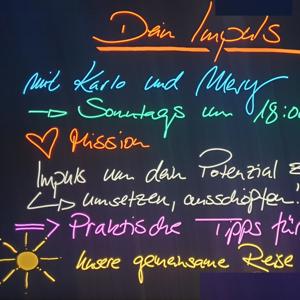 Dein Impuls
mit Karlo und Mary
Sonntags um 18:0
Mission
Impuls um dein Potenzial
umsetzen, ausschöpfen!
Praktische Tipps für
unsere gemeinsame Reise